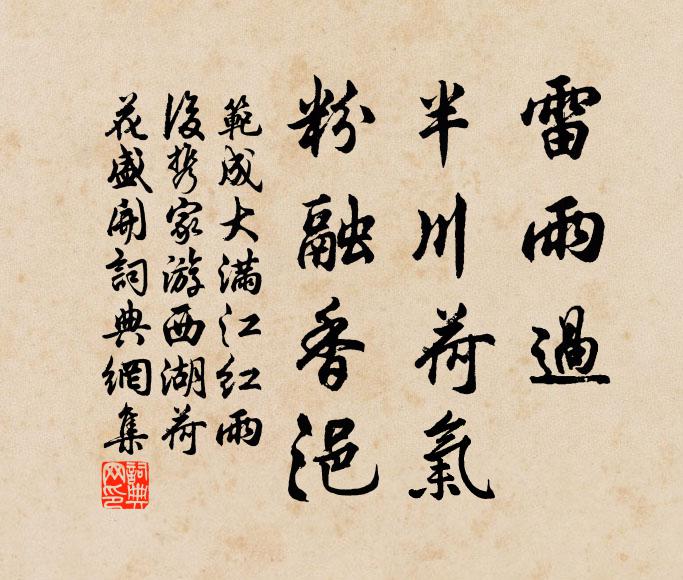 雷雨過
半川荷氣
粉融香浥
範成大滿江紅雨
後携家游西湖荷
花盛開詞典網集
詞典网印